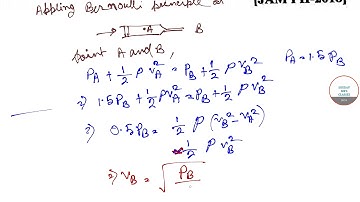 Appling Bernoulli principle at [JAM PH-2018]
A B
point A and B,
P_A + 1/2 ρ v_A^2 = P_B + 1/2 ρ v_B^2 P_A = 1.5 P_B
⇒ 1.5 P_B + 1/2 ρ v_A^2 = P_B + 1/2 ρ v_B^2
⇒ 0.5 P_B = 1/2 ρ (v_B^2 - v_A^2)
1/2 ρ v_B^2
⇒ v_B = √P_B